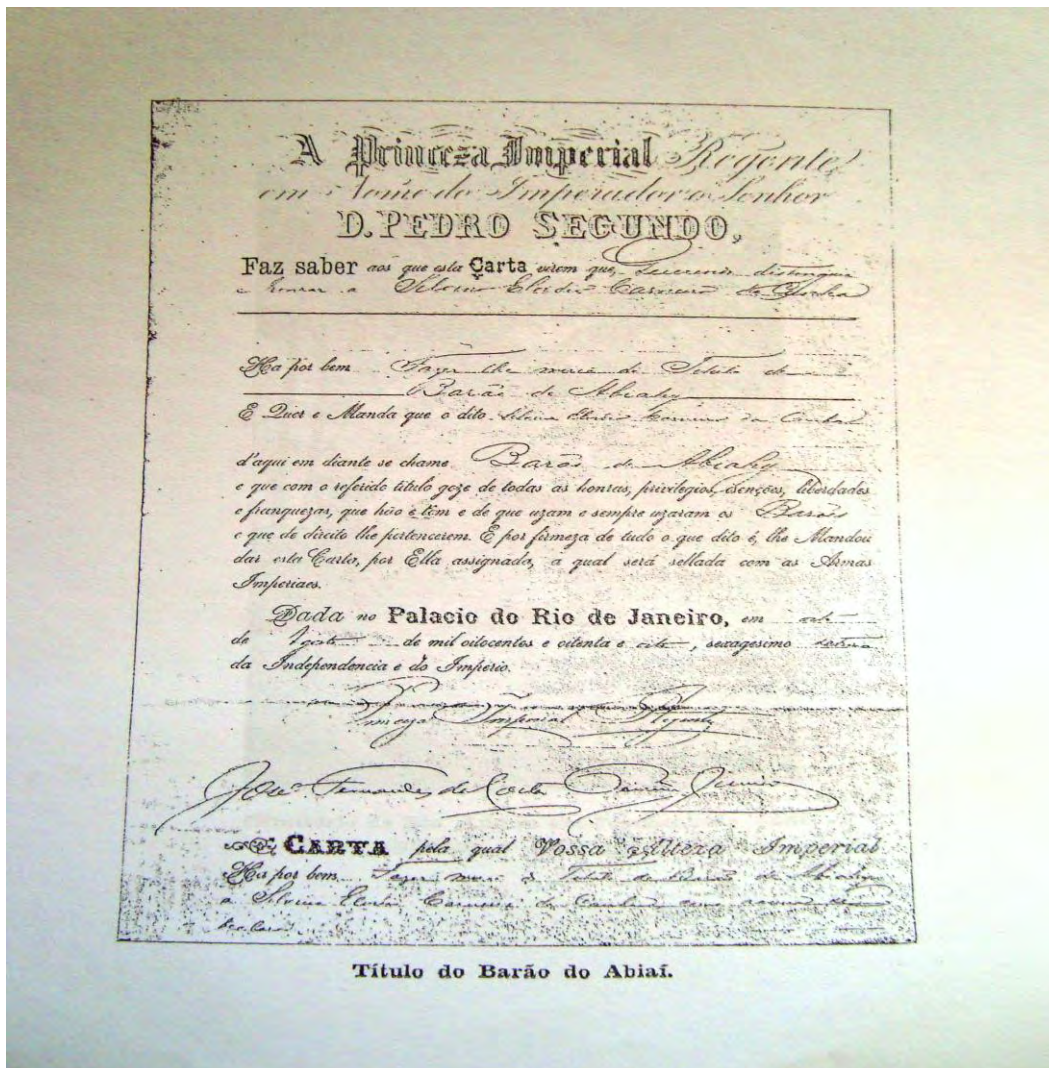 A Princeza Imperial Regente
em Nome do Imperador o Senhor
D. PEDRO SEGUNDO,
Faz saber aos que esta Carta virem que, Querendo distinguir
e honrar a Silvino Elvidio Carneiro da Cunha
Ha por bem Fazer lhe mercê do Titulo de
Barão de Abiahy
E Quer e Manda que o dito Silvino Elvidio Carneiro da Cunha
d'aqui em diante se chame Barão de Abiahy
e que com o referido titulo goze de todas as honras, privilegios, isenções, liberdades
e franquezas, que hão e têm e de que uzam e sempre uzaram os Barões
e que de direito lhe pertencerem. E por firmeza de tudo o que dito é, lhe Mandou
dar esta Carta, por Ella assignada, a qual será sellada com as Armas
Imperiaes.
Dada no Palacio do Rio de Janeiro, em oito
de Agosto de mil oitocentos e oitenta e oito, sexagesimo
da Independencia e do Imperio.
Princeza Imperial Regente
José Fernandes da Costa Pereira Junior
CARTA pela qual Vossa Alteza Imperial
Ha por bem Fazer mercê do Titulo de Barão de Abiahy
a Silvino Elvidio Carneiro da Cunha como acima se
declara
Título do Barão do Abiaí.